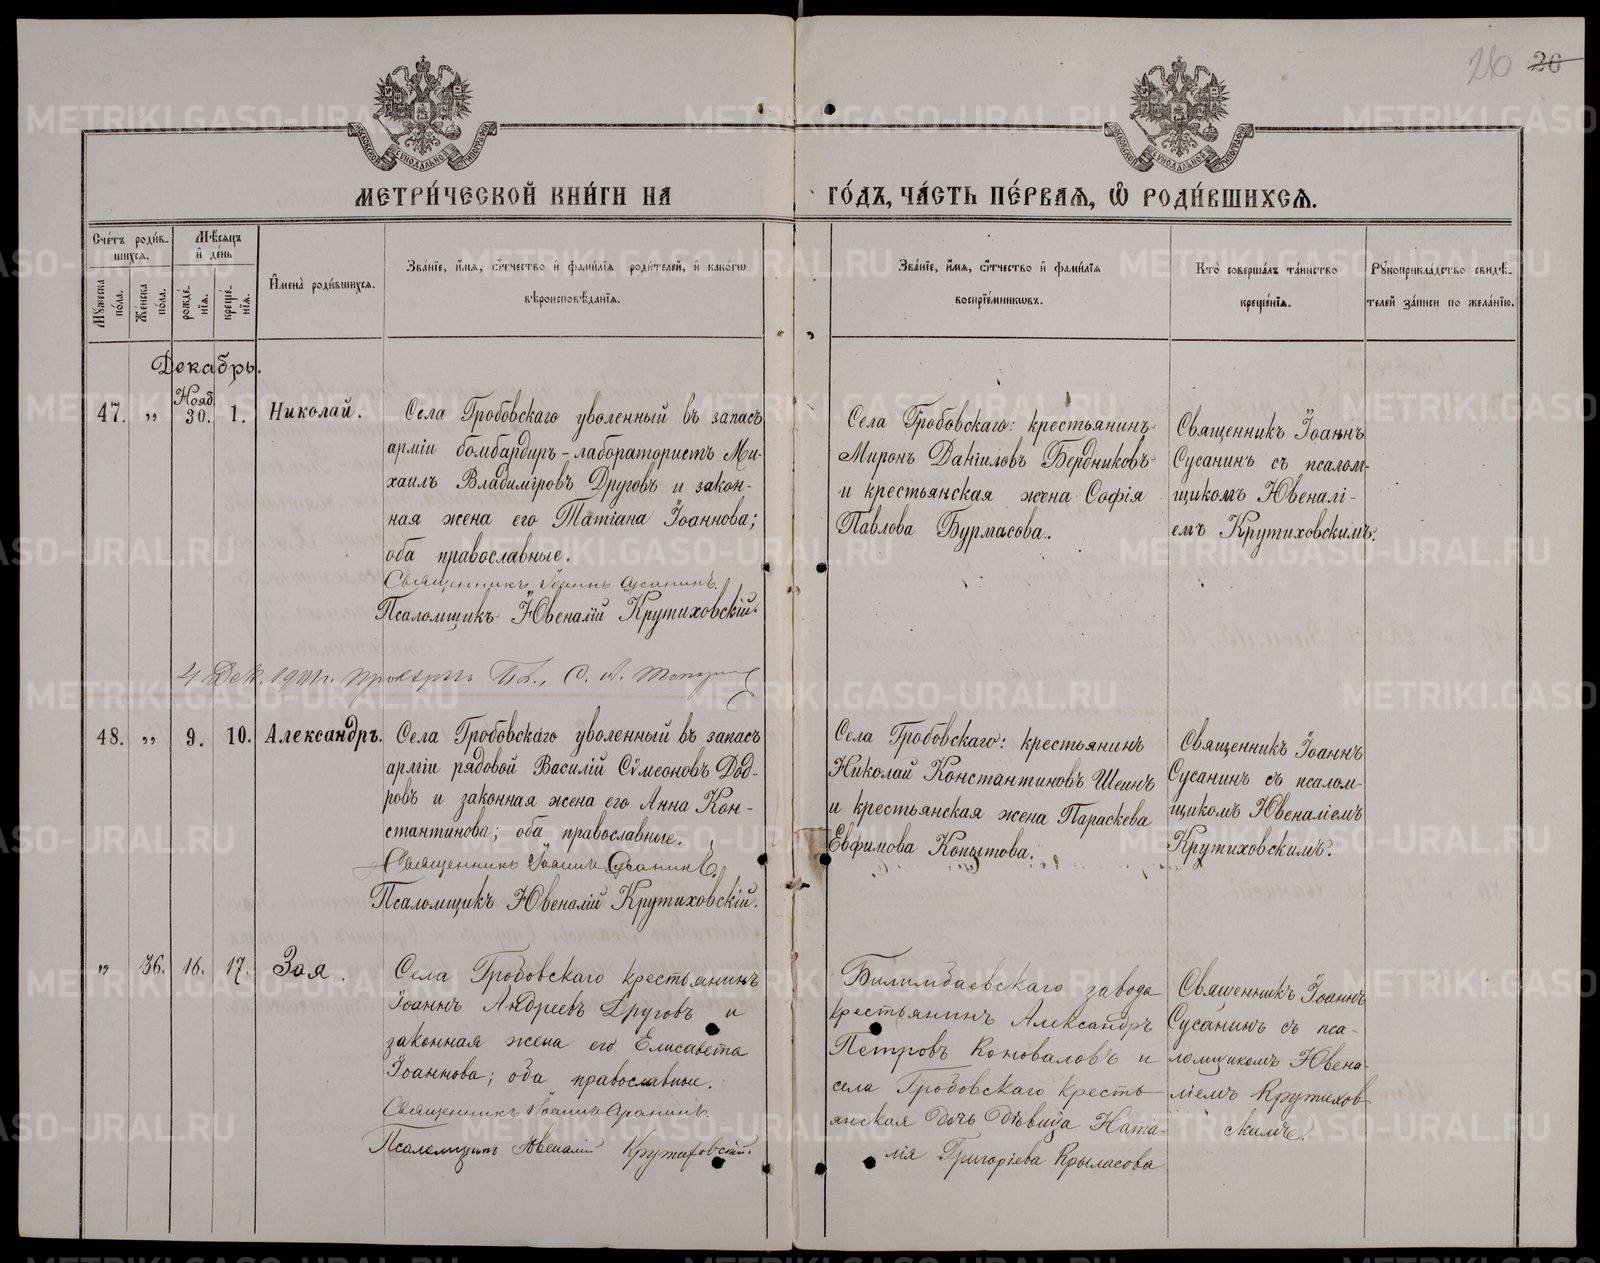 26 20
МЕТРИ́ЧЕСКОЙ КНИ́ГИ НА ГО́ДЪ, ЧА́СТЬ ПЕ́РВАѦ, Ѡ҆ РОДИ́ВШИХСѦ.
Сче́тъ роди́в-
шихсѧ.
Мꙋжеска по́ла.
Же́нска по́ла.
Мѣ́сѧцъ
и҆ де́нь
рожде́-
нїѧ.
креще́-
нїѧ.
И҆мена̀ роди́вшихсѧ.
Зва́нїе, и҆́мѧ, ѻ҆́тчество и҆ фами́лїѧ роди́телей, и҆ како́гѡ
вѣроисповѣ́данїѧ.
Зва́нїе, и҆́мѧ, ѻ҆́тчество и҆ фами́лїѧ
воспрїе́мникѡвъ.
Кто̀ соверша́лъ та́инство
креще́нїѧ.
Рꙋкоприкла́дство свидѣ́-
телей за́писи по жела́нїю.
Декабрь.
Нояб.
47. „ 30. 1. Николай.
Села Гробовскаго уволенный въ запасъ
арміи бомбардиръ-лаборатористъ Ми-
хаилъ Владиміровъ Друговъ и закон-
ная жена его Татіана Іоаннова;
оба православные.
Священникъ Іоаннъ Сусанинъ.
Псаломщикъ Ювеналій Крутиховскій.
Села Гробовскаго: крестьянинъ
Миронъ Даніиловъ Бердниковъ
и крестьянская жена Софія
Павлова Бурмасова.
Священникъ Іоаннъ
Сусанинъ съ псалом-
щикомъ Ювеналі-
емъ Крутиховскимъ.
4 Дек. С. А.
48. „ 9. 10. Александръ.
Села Гробовскаго уволенный въ запасъ
арміи рядовой Василій Сѵмеоновъ Дод-
ровъ и законная жена его Анна Кон-
стантинова; оба православные.
Священникъ Іоаннъ Сусанинъ.
Псаломщикъ Ювеналій Крутиховскій.
Села Гробовскаго: крестьянинъ
Николай Константиновъ Шеинъ
и крестьянская жена Параскева
Евфимова Копытова.
Священникъ Іоаннъ
Сусанинъ съ псалом-
щикомъ Ювеналіемъ
Крутиховскимъ.
„ 36. 16. 17. Зоя.
Села Гробовскаго крестьянинъ
Іоаннъ Андреевъ Друговъ и
законная жена его Елисавета
Іоаннова; оба православные.
Священникъ Іоаннъ Сусанинъ.
Псаломщикъ Ювеналій Крутиховскій.
Билимбаевскаго завода
крестьянинъ Александръ
Петровъ Коноваловъ и
села Гробовскаго кресть-
янская дочь дѣвица Ната-
лія Григоріева Крыласова
Священникъ Іоаннъ
Сусанинъ съ пса-
ломщикомъ Ювена-
ліемъ Крутихов-
скимъ.
METRIKI.GASO-URAL.RU